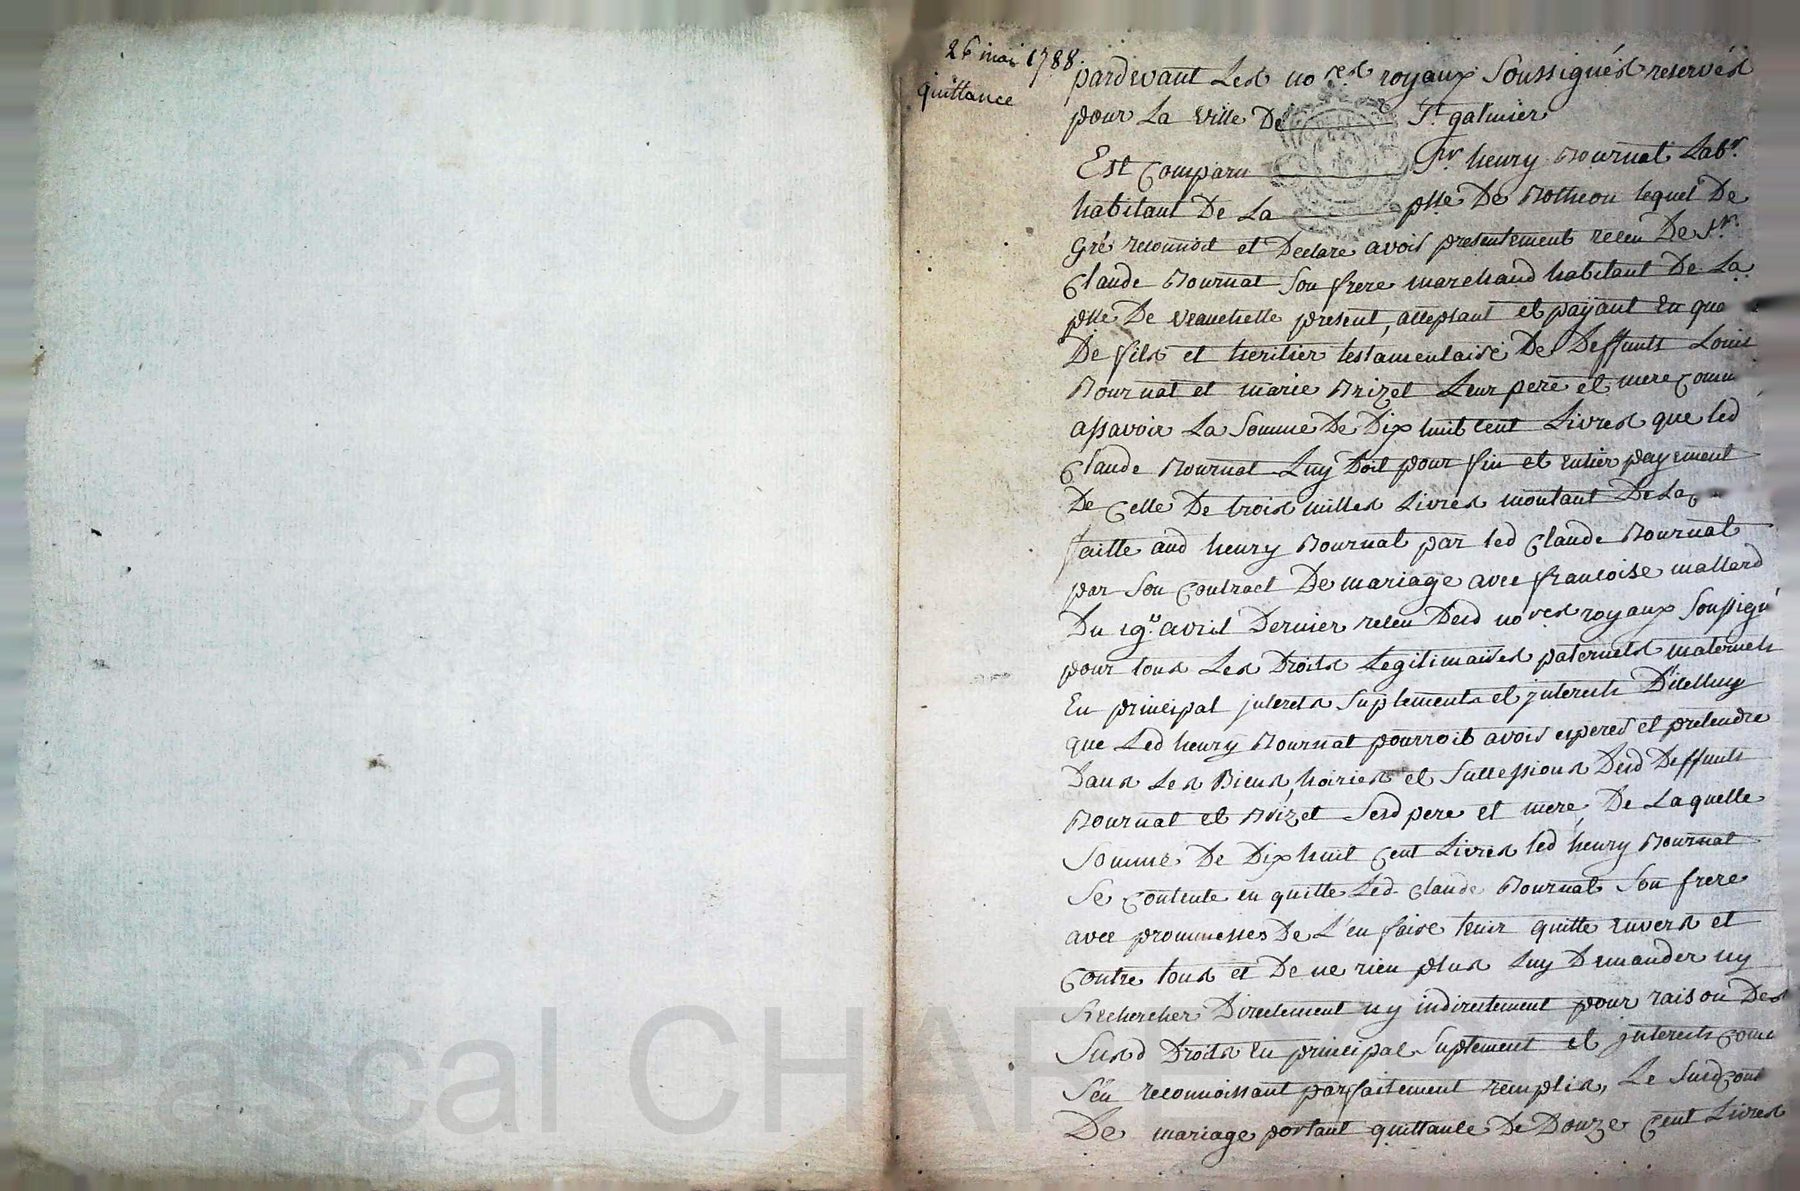 26 mai 1788.
quittance
pardevant Les no.res royaux Soussignés reservés
pour La ville De St galmier
Est Comparu Sr. henry Bournat Labr.
habitant De La psse De Botheon lequel De
Gré reconnoit et Declare avoir presentement receu De Sr.
Claude Bournat Son frere marchand habitant De La
psse De veauchette present, acceptant et payant En qua
De fils et heritier testamentaire De Deffunts Louis
Bournat et marie Brizet Leur pere et mere Comm
assavoir La Somme De Dix huit cent Livres que led
Claude Bournat Luy Doit pour fin et entier payement
De Celle De trois milles Livres montant De La
faitte aud henry Bournat par led Claude Bournat
par Son Contract De mariage avec francoise mallard
Du 19e. avril Dernier receu Desd no.res royaux Soussigné
pour tous Les Droits Legitimaires paternels maternels
En principal jnterets Suplements et jnterests D'icelluy
que Led henry Bournat pourroit avoir esperer et pretendre
Dans Les Biens, hoiries et Successions Desd Deffunts
Bournat et Brizet Sesd pere et mere, De Laquelle
Somme De Dix huit Cent Livres led henry Bournat
Se Contente en quitte Led. Claude Bournat Son frere
avec prommesses De L'en faire tenir quitte Envers et
Contre tous et De ne rien plus Luy Demander ny
Rechercher Directement ny indirectement pour raison Des
Susd Droits En principal Suplement et jnterests Comme
S'en reconnoissant parfaitement remplis, Le Susd Cont
De mariage portant quittance De Douze Cent Livres
Pascal CHA